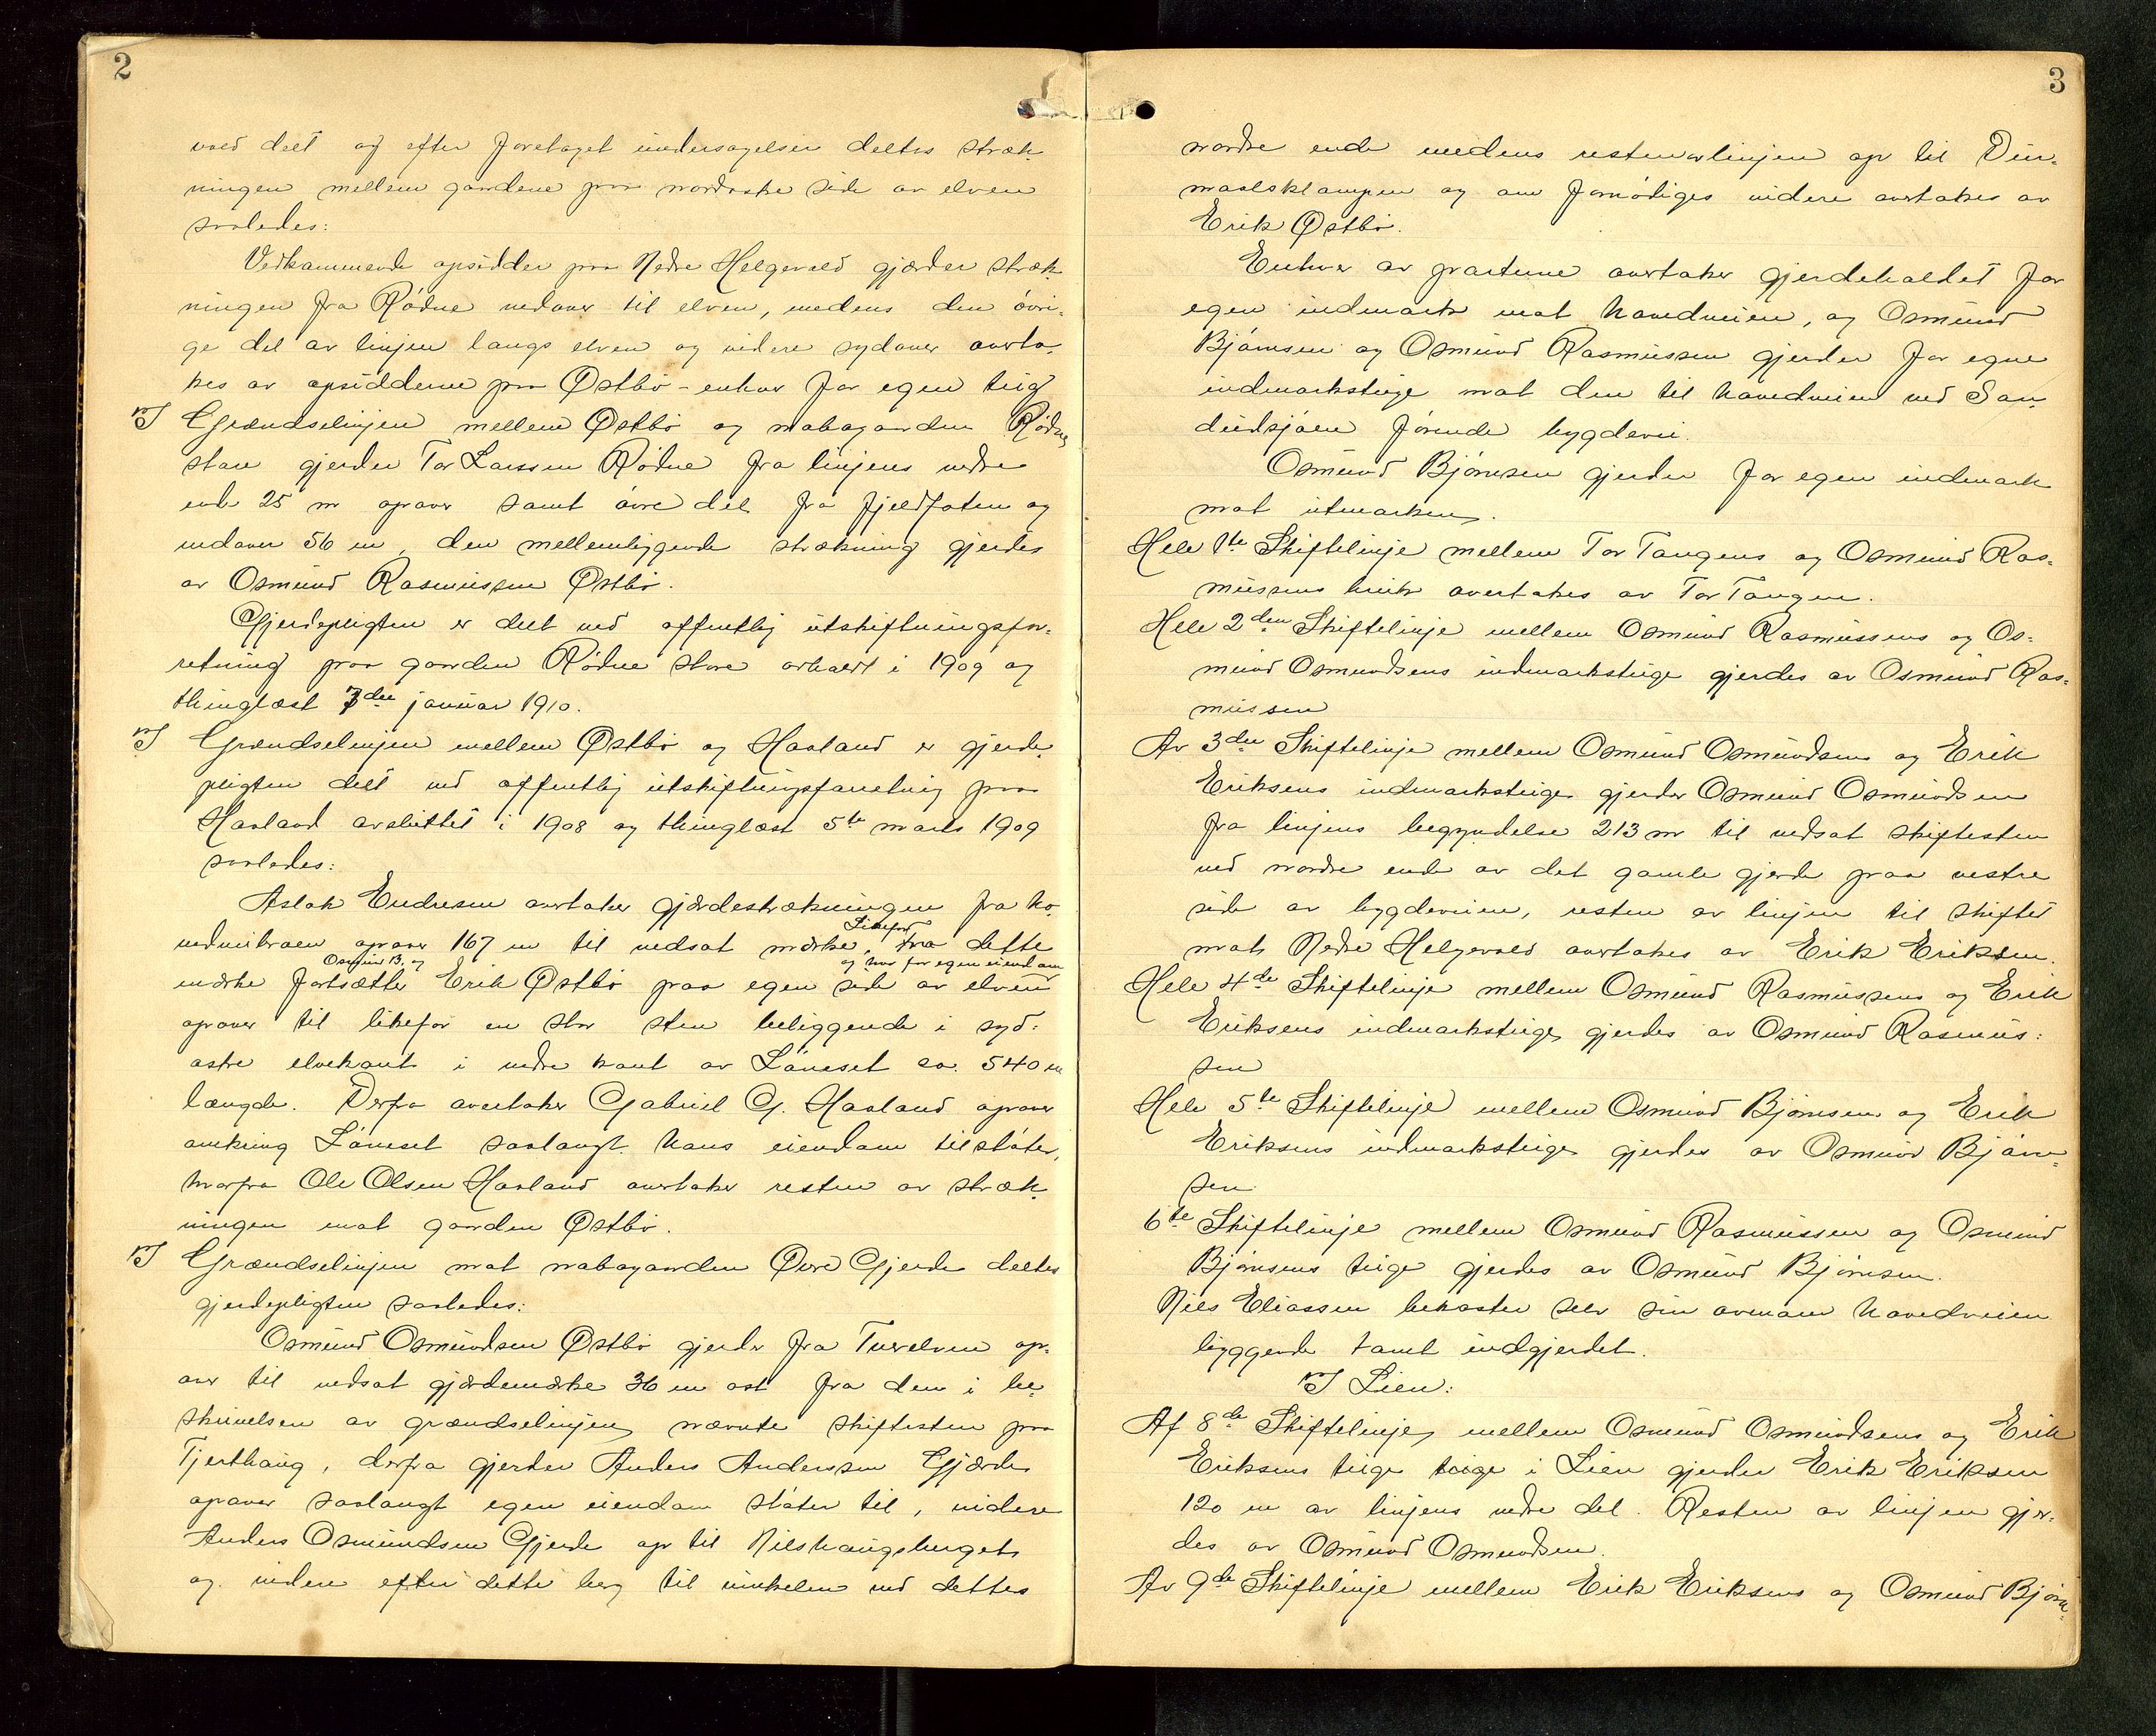 2
ved delt og efter foretaget undersøgelser deltes stræk-
ningen mellem gaardene paa nordøstre side av elven
saaledes:
Vedkommende opsidder paa Nedre Helgevold gjærder stræk-
ningen fra Rødne nedover til elven, medens den øvri-
ge del av linjen langs elven og videre sydover overta-
kes av opsidderne paa Østbø - enhver for egen teig
I Grændselinjen mellem Østbø og nabogaarden Rødne
store gjerder Tor Larssen Rødne fra linjens nedre
ende 25 m opover samt øvre del fra fjeldfoten og
nedover 56 m, den mellemliggende strækning gjerdes
av Osmund Rasmussen Østbø.
Gjerdepligten er delt ved offentlig utskiftningsfor-
retning paa gaarden Rødne store avholdt i 1909 og
thinglæst 7de januar 1910.
I Grændselinjen mellem Østbø og Haaland er gjerde-
pligten delt ved offentlig utskiftningsforretning paa
Haaland avsluttet i 1908 og thinglæst 5te marts 1909
saaledes:
Aslak Endresen overtaker gjærdestrækningen fra ho-
vedveibroen opover 167 m til nedsat mærke, Likefor fra dette
mærke fortsætter Osmund B. og Erik Østbø paa egen side av elven og hver for egen eiendom
opover til likefor en stor sten beliggende i syd-
østre elvekant i nedre kant av Løneset ca. 540 m
længde. Derfra overtaker Gabriel G. Haaland opover
omkring Løneset saalangt hans eiendom tilstøter,
hvorfra Ole Olsen Haaland overtaker resten av stræk-
ningen mot gaarden Østbø.
I Grændselinjen mot nabogaarden Øvre Gjerde deltes
gjerdepligten saaledes:
Osmund Osmundsen Østbø gjerder fra Tuerelven op-
over til nedsat gjærdemærke 36 m øst fra den i be-
skrivelsen av grændselinjen nævnte skiftesten paa
Tjerthaug, derfra gjerder Anders Anderssen Gjærde
opover saalangt egen eiendom støter til, videre
Anders Osmundsen Gjerde op til Nilshaugsberget
og videre efter dette berg til vinkelen ved dettes
3
nordre ende medens resten av linjen op til Din-
maalsklampen og om fornødiges videre overtakes av
Erik Østbø.
Enhver av parterne overtaker gjerdeholdet for
egen indmark mot hovedveien, og Osmund
Bjørnsen og Osmund Rasmussen gjerder for egne
indmarksteige mot den til hovedveien ved San-
deidsjøen førende bygdevei.
Osmund Bjørnsen gjerder for egen indmark
mot utmarken.
Hele 1te Skiftelinje mellem Tor Tangens og Osmund Ras-
mussens bruk overtakes av Tor Tangen.
Hele 2den Skiftelinje mellem Osmund Rasmussens og Os-
mund Osmundsens indmarksteige gjerdes av Osmund Ras-
mussen
Av 3die Skiftelinje mellem Osmund Osmundsens og Erik
Eriksens indmarksteige gjerder Osmund Osmundsen
fra linjens begyndelse 213 m til nedsat skiftesten
ved nordre ende av det gamle gjerde paa vestre
side av bygdeveien, resten av linjen til skiftet
mot Nedre Helgevold overtakes av Erik Eriksen.
Hele 4de Skiftelinje mellem Osmund Rasmussens og Erik
Eriksens indmarksteige gjerdes av Osmund Rasmus-
sen
Hele 5te Skiftelinje mellem Osmund Bjørnsens og Erik
Eriksens indmarksteige gjerdes av Osmund Bjørn-
sen
6te Skiftelinje mellem Osmund Rasmussen og Osmund
Bjørnsens teige gjerdes av Osmund Bjørnsen.
Nils Eliassen bekoster selv sin ovenom hovedveien
liggende tomt indgjerdet.
I Lien:
Af 8de Skiftelinje mellem Osmund Osmundsens og Erik
Eriksens teige teige i Lien gjerder Erik Eriksen
120 m av linjens nedre del. Resten av linjen gjer-
des av Osmund Osmundsen.
Av 9de Skiftelinje mellem Erik Eriksens og Osmund Bjørn-